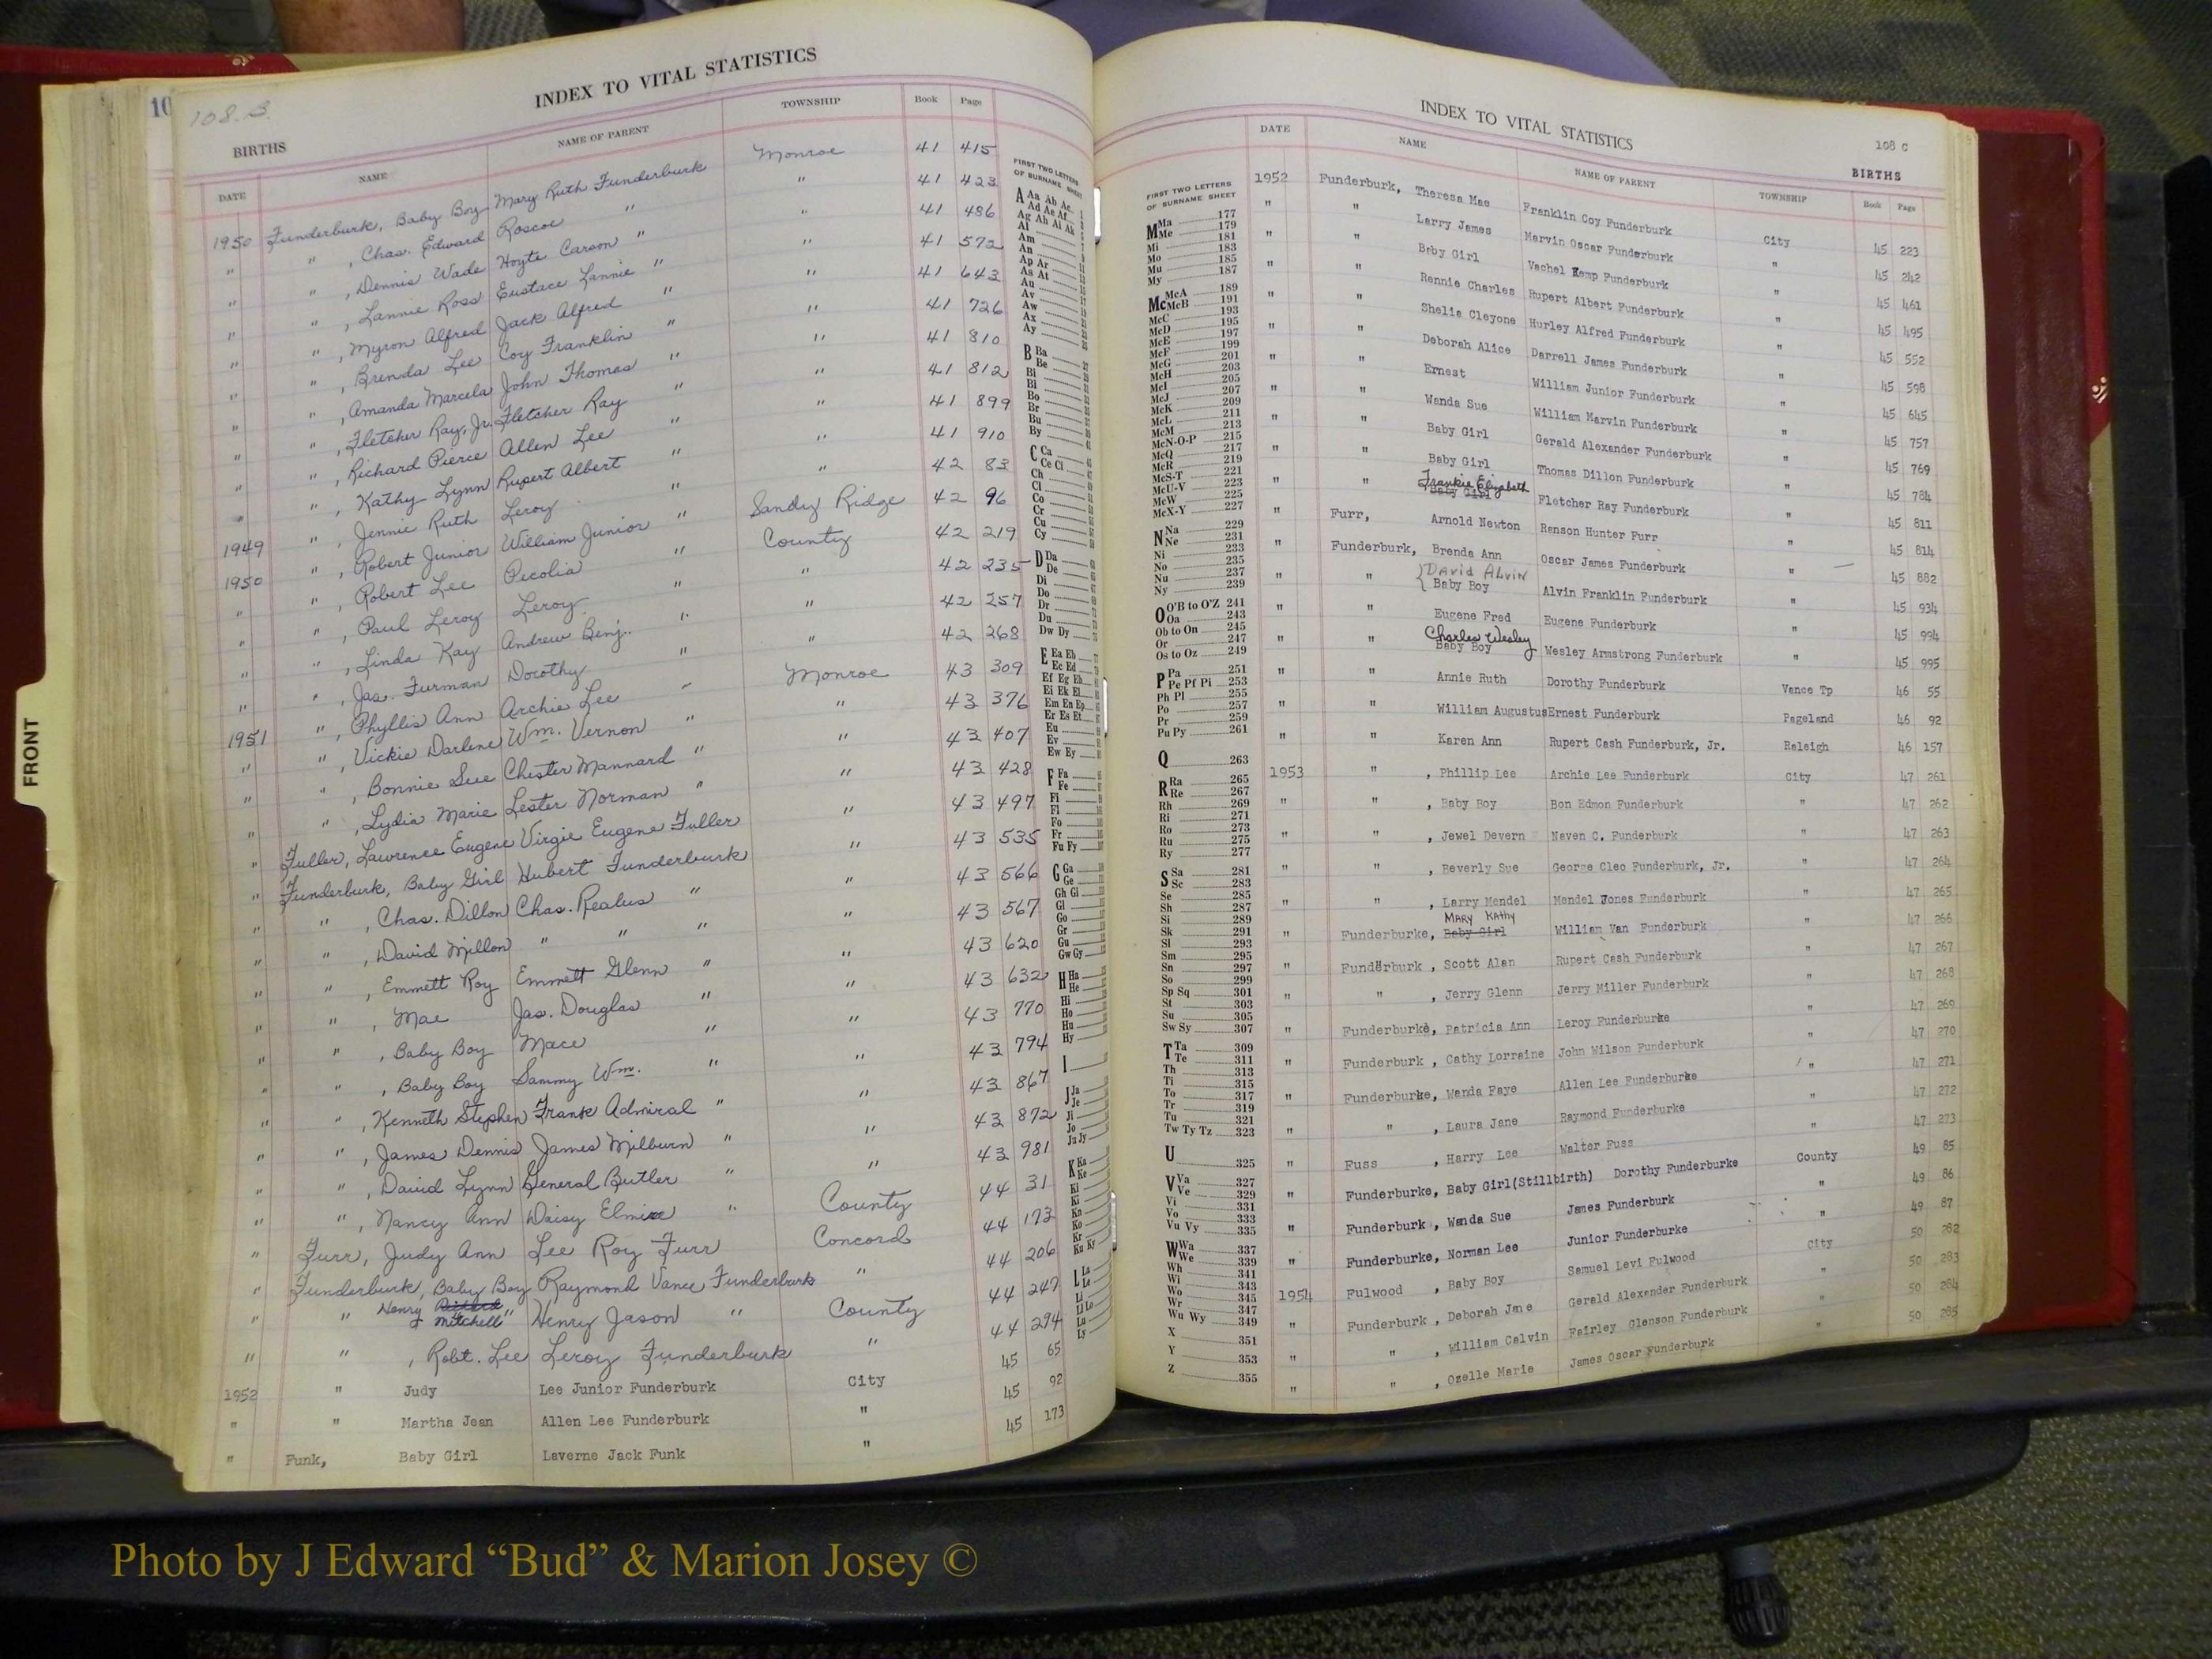 108.B.
10
INDEX TO VITAL STATISTICS
BIRTHS
DATE NAME NAME OF PARENT TOWNSHIP Book Page
1950 Funderburk, Baby Boy Mary Ruth Funderburk Monroe 41 415
" " , Chas. Edward Roscoe " " 41 423
" " , Dennis Wade Hoyte Carson " " 41 486
" " , Lannie Ross Eustace Lannie " " 41 572
" " , Myron Alfred Jack Alfred " " 41 643
" " , Brenda Lee Coy Franklin " " 41 726
" " , Amanda Marcela John Thomas " " 41 810
" " , Fletcher Ray, Jr. Fletcher Ray " " 41 812
" " , Richard Pierce Allen Lee " " 41 899
" " , Kathy Lynn Rupert Albert " " 41 910
" " , Jennie Ruth Leroy " " 42 83
1949 " , Robert Junior William Junior " Sandy Ridge 42 96
1950 " , Robert Lee Pecolia " County 42 219
" " , Paul Leroy Leroy " " 42 235
" " , Linda Kay Andrew Benj. " " 42 257
" " , Jas. Furman Dorothy " " 42 268
1951 " , Phyllis Ann Archie Lee " Monroe 43 309
" " , Vickie Darlene Wm. Vernon " " 43 376
" " , Bonnie Sue Chester Mannard " " 43 407
" " , Lydia Marie Lester Norman " " 43 428
" Fuller, Lawrence Eugene Virgie Eugene Fuller " 43 497
" Funderburk, Baby Girl Hubert Funderburk " 43 535
" " , Chas. Dillon Chas. Realus " " 43 566
" " , David Millon " " " " 43 567
" " , Emmett Roy Emmett Glenn " " 43 620
" " , Mae Jas. Douglas " " 43 632
" " , Baby Boy Mace " " 43 770
" " , Baby Boy Sammy Wm. " " 43 794
" " , Kenneth Stephen Frank Admiral " " 43 867
" " , James Dennis James Milburn " " 43 872
" " , David Lynn General Butler " " 43 981
" " , Nancy Ann Daisy " County 44 31
" Furr, Judy Ann Lee Roy Furr Concord 44 173
" Funderburk, Baby Boy Raymond Vance Funderburk " 44 206
" " Henry Mitchell Henry Jason " County 44 247
" " , Robt. Lee Leroy Funderburk " 44 294
1952 " Judy Lee Junior Funderburk City 45 65
" " Martha Jean Allen Lee Funderburk " 45 92
" Funk, Baby Girl Laverne Jack Funk " 45 173
FIRST TWO LETTERS
OF SURNAME SHEET
A Aa Ab Ac
Ad Ae Af
Ag Ah Ai Ak
Al
Am
An
Ap Ar
As At
Au
Av
Aw
Ax
Ay
B Ba
Be
Bi
Bl
Bo
Br
Bu
By
C Ca
Ce Ci
Ch
Cl
Co
Cr
Cu
Cy
D Da
De
Di
Do
Dr
Du
Dw Dy
E Ea Eb
Ec Ed
Ef Eg Eh
Ei Ek El
Em En Ep
Er Es Et
Eu
Ev
Ew Ey
F Fa
Fe
Fi
Fl
Fo
Fr
Fu Fy
G Ga
Ge
Gh Gi
Gl
Go
Gr
Gu
Gw Gy
H Ha
He
Hi
Ho
Hu
Hy
I
J Ja
Je
Ji
Jo
Ju Jy
K Ka
Ke
Ki
Kl
Kn
Ko
Kr
Ku Ky
L La
Le
Li
Ll Lo
Lu
Ly
INDEX TO VITAL STATISTICS
108 C
BIRTHS
DATE NAME NAME OF PARENT TOWNSHIP Book Page
FIRST TWO LETTERS
OF SURNAME SHEET
M Ma 177
Me 179
Mi 181
Mo 183
Mu 185
My 187
Mc McA 189
McB 191
McC 193
McD 195
McE 197
McF 199
McG 201
McH 203
McI 205
McJ 207
McK 209
McL 211
McM 213
McN-O-P 215
McQ 217
McR 219
McS-T 221
McU-V 223
McW 225
McX-Y 227
N Na 229
Ne 231
Ni 233
No 235
Nu 237
Ny 239
O O'B to O'Z 241
Oa 243
Ob to On 245
Or 247
Os to Oz 249
P Pa 251
Pe Pf Pi 253
Ph Pl 255
Po 257
Pr 259
Pu Py 261
Q 263
R Ra 265
Re 267
Rh 269
Ri 271
Ro 273
Ru 275
Ry 277
S Sa 281
Sc 283
Se 285
Sh 287
Si 289
Sk 291
Sl 293
Sm 295
Sn 297
So 299
Sp Sq 301
St 303
Su 305
Sw Sy 307
T Ta 309
Te 311
Th 313
Ti 315
To 317
Tr 319
Tu 321
Tw Ty Tz 323
U 325
V Va 327
Ve 329
Vi 331
Vo 333
Vu Vy 335
W Wa 337
We 339
Wh 341
Wi 343
Wo 345
Wr 347
Wu Wy 349
X 351
Y 353
Z 355
1952 Funderburk, Theresa Mae Franklin Coy Funderburk City 45 223
" " Larry James Marvin Oscar Funderburk " 45 242
" " Baby Girl Vachel Kemp Funderburk " 45 461
" " Rennie Charles Rupert Albert Funderburk " 45 495
" " Shelia Cleyone Hurley Alfred Funderburk " 45 552
" " Deborah Alice Darrell James Funderburk " 45 598
" " Ernest William Junior Funderburk " 45 645
" " Wanda Sue William Marvin Funderburk " 45 757
" " Baby Girl Gerald Alexander Funderburk " 45 769
" " Baby Girl Thomas Dillon Funderburk " 45 784
" " Frankie Elizabeth Baby Girl Fletcher Ray Funderburk " 45 811
" Furr, Arnold Newton Ranson Hunter Furr " 45 814
" Funderburk, Brenda Ann Oscar James Funderburk " 45 882
" " { David Alvin Baby Boy Alvin Franklin Funderburk " 45 934
" " Eugene Fred Eugene Funderburk " 45 994
" " Charles Wesley Baby Boy Wesley Armstrong Funderburk " 45 995
" " Annie Ruth Dorothy Funderburk Vance Tp 46 55
" " William Augustus Ernest Funderburk Pageland 46 92
" " Karen Ann Rupert Cash Funderburk, Jr. Raleigh 46 157
1953 " , Phillip Lee Archie Lee Funderburk City 47 261
" " , Baby Boy Bon Edmon Funderburk " 47 262
" " , Jewel Devern Neven C. Funderburk " 47 263
" " , Beverly Sue George Cleo Funderburk, Jr. " 47 264
" " , Larry Mendel Mendel Jones Funderburk " 47 265
" Funderburke, Mary Kathy Baby Girl William Van Funderburk " 47 266
" Funderburk , Scott Alan Rupert Cash Funderburk " 47 267
" " , Jerry Glenn Jerry Miller Funderburk " 47 268
" Funderburke, Patricia Ann Leroy Funderburke " 47 269
" Funderburk , Cathy Lorraine John Wilson Funderburk " 47 270
" Funderburke, Wanda Faye Allen Lee Funderburke " 47 271
" " , Laura Jane Raymond Funderburke " 47 272
" Fuss , Harry Lee Walter Fuss " 47 273
" Funderburke, Baby Girl(Stillbirth) Dorothy Funderburke County 49 85
" Funderburk , Wanda Sue James Funderburk " 49 86
" Funderburke, Norman Lee Junior Funderburke " 49 87
1954 Fulwood , Baby Boy Samuel Levi Fulwood City 50 282
" Funderburk , Deborah Jane Gerald Alexander Funderburk " 50 283
" " , William Calvin Fairley Glenson Funderburk " 50 284
" " , Ozelle Marie James Oscar Funderburk " 50 285
FRONT
Photo by J Edward “Bud” & Marion Josey ©